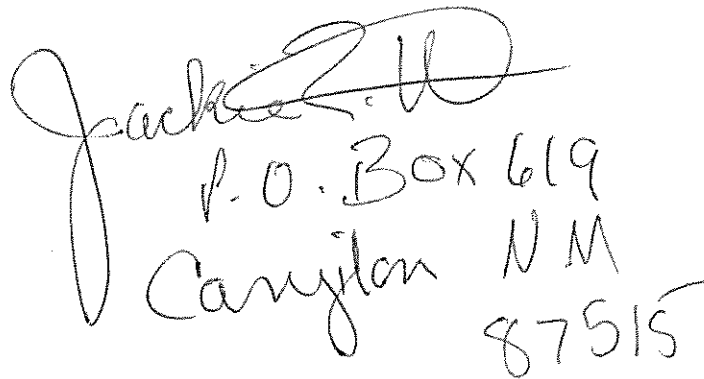 Jackie
P.O. Box 619
Canjilon NM
87515